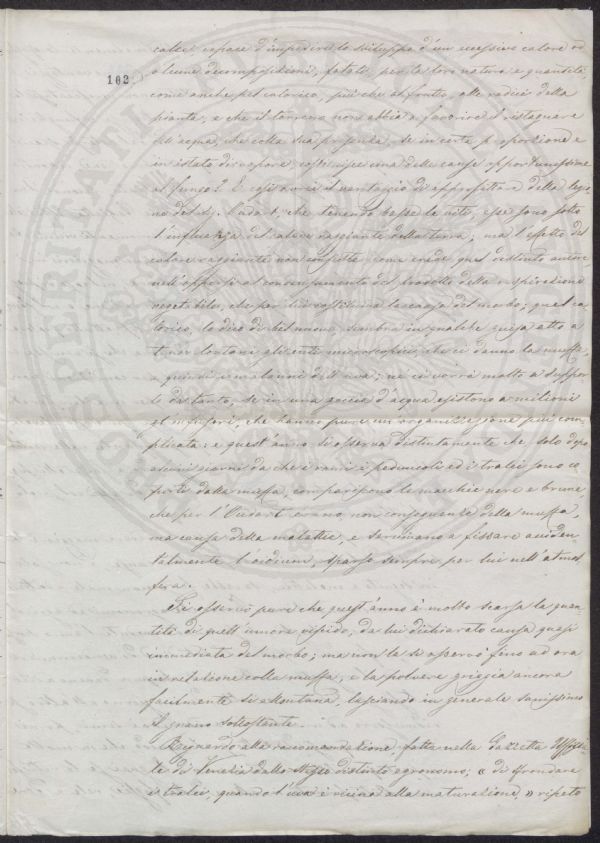 calce capace d'impedire lo sviluppo d'un eccessivo calore od
102.
alcune decomposizioni, fatali, per la loro natura e quantità
come anche pel calorico, più che al frutto, alle radici della
pianta, e che il terreno non abbia a favorire il ristagnare
dell'acqua, che colla sua presenza, se in certe proporzione e
in istato di vapore, costituisce una delle cause opportunissime
al fungo? E così avria il vantaggio di approfittare della
del d.r Oudart, che tenendo basse le viti, esse sono sotto
l'influenza del calore raggiante della terra, ma l'effetto del
calore raggiante non consiste come crede quel distinto autore
nell'opporsi al condensamento del prodotto della respirazione
vegetabile, che per lui costituiva la causa del morbo; quel ca-
lorico, lo dico di bel nuovo, sembra in qualche guisa atto a
tener lontani gli enti microscopici, che ci danno la muffa,
e quindi i malanni dell'uva; nè ci vorrà molto a suppor-
lo da tanto, se in una goccia d'acqua esistono a milioni
gl'infusori, che hanno pure un organizzazione più com-
plicata: e quest'anno si osserva distintamente che solo dopo
alcuni giorni da che i rami i peduncoli ed i tralci sono co-
perti dalla muffa, compariscono le macchie nere e brune,
che per l'Oudart erano, non conseguenze della muffa,
ma causa della malattia, e servivano a fissare acciden-
talmente l'oidium, sparso sempre, per lui nell'atmos-
fera.
Si osservi pure che quest'anno è molto scarsa la quan-
tità di quell'umore viscido, da lui dichiarato causa quasi
immediata del morbo; ma non la si osservò fino ad ora
in relazione colla muffa, e la polvere griggia ancora
facilmente si allontana, lasciando in generale sanissimo
il grano sottostante.
Riguardo alla raccomandazione fatta nella Gazzetta Uffizia-
le di Venezia dallo stesso distinto agronomo; « di sfrondare
i tralci, quando l'uva è vicina alla maturazione, » ripeto